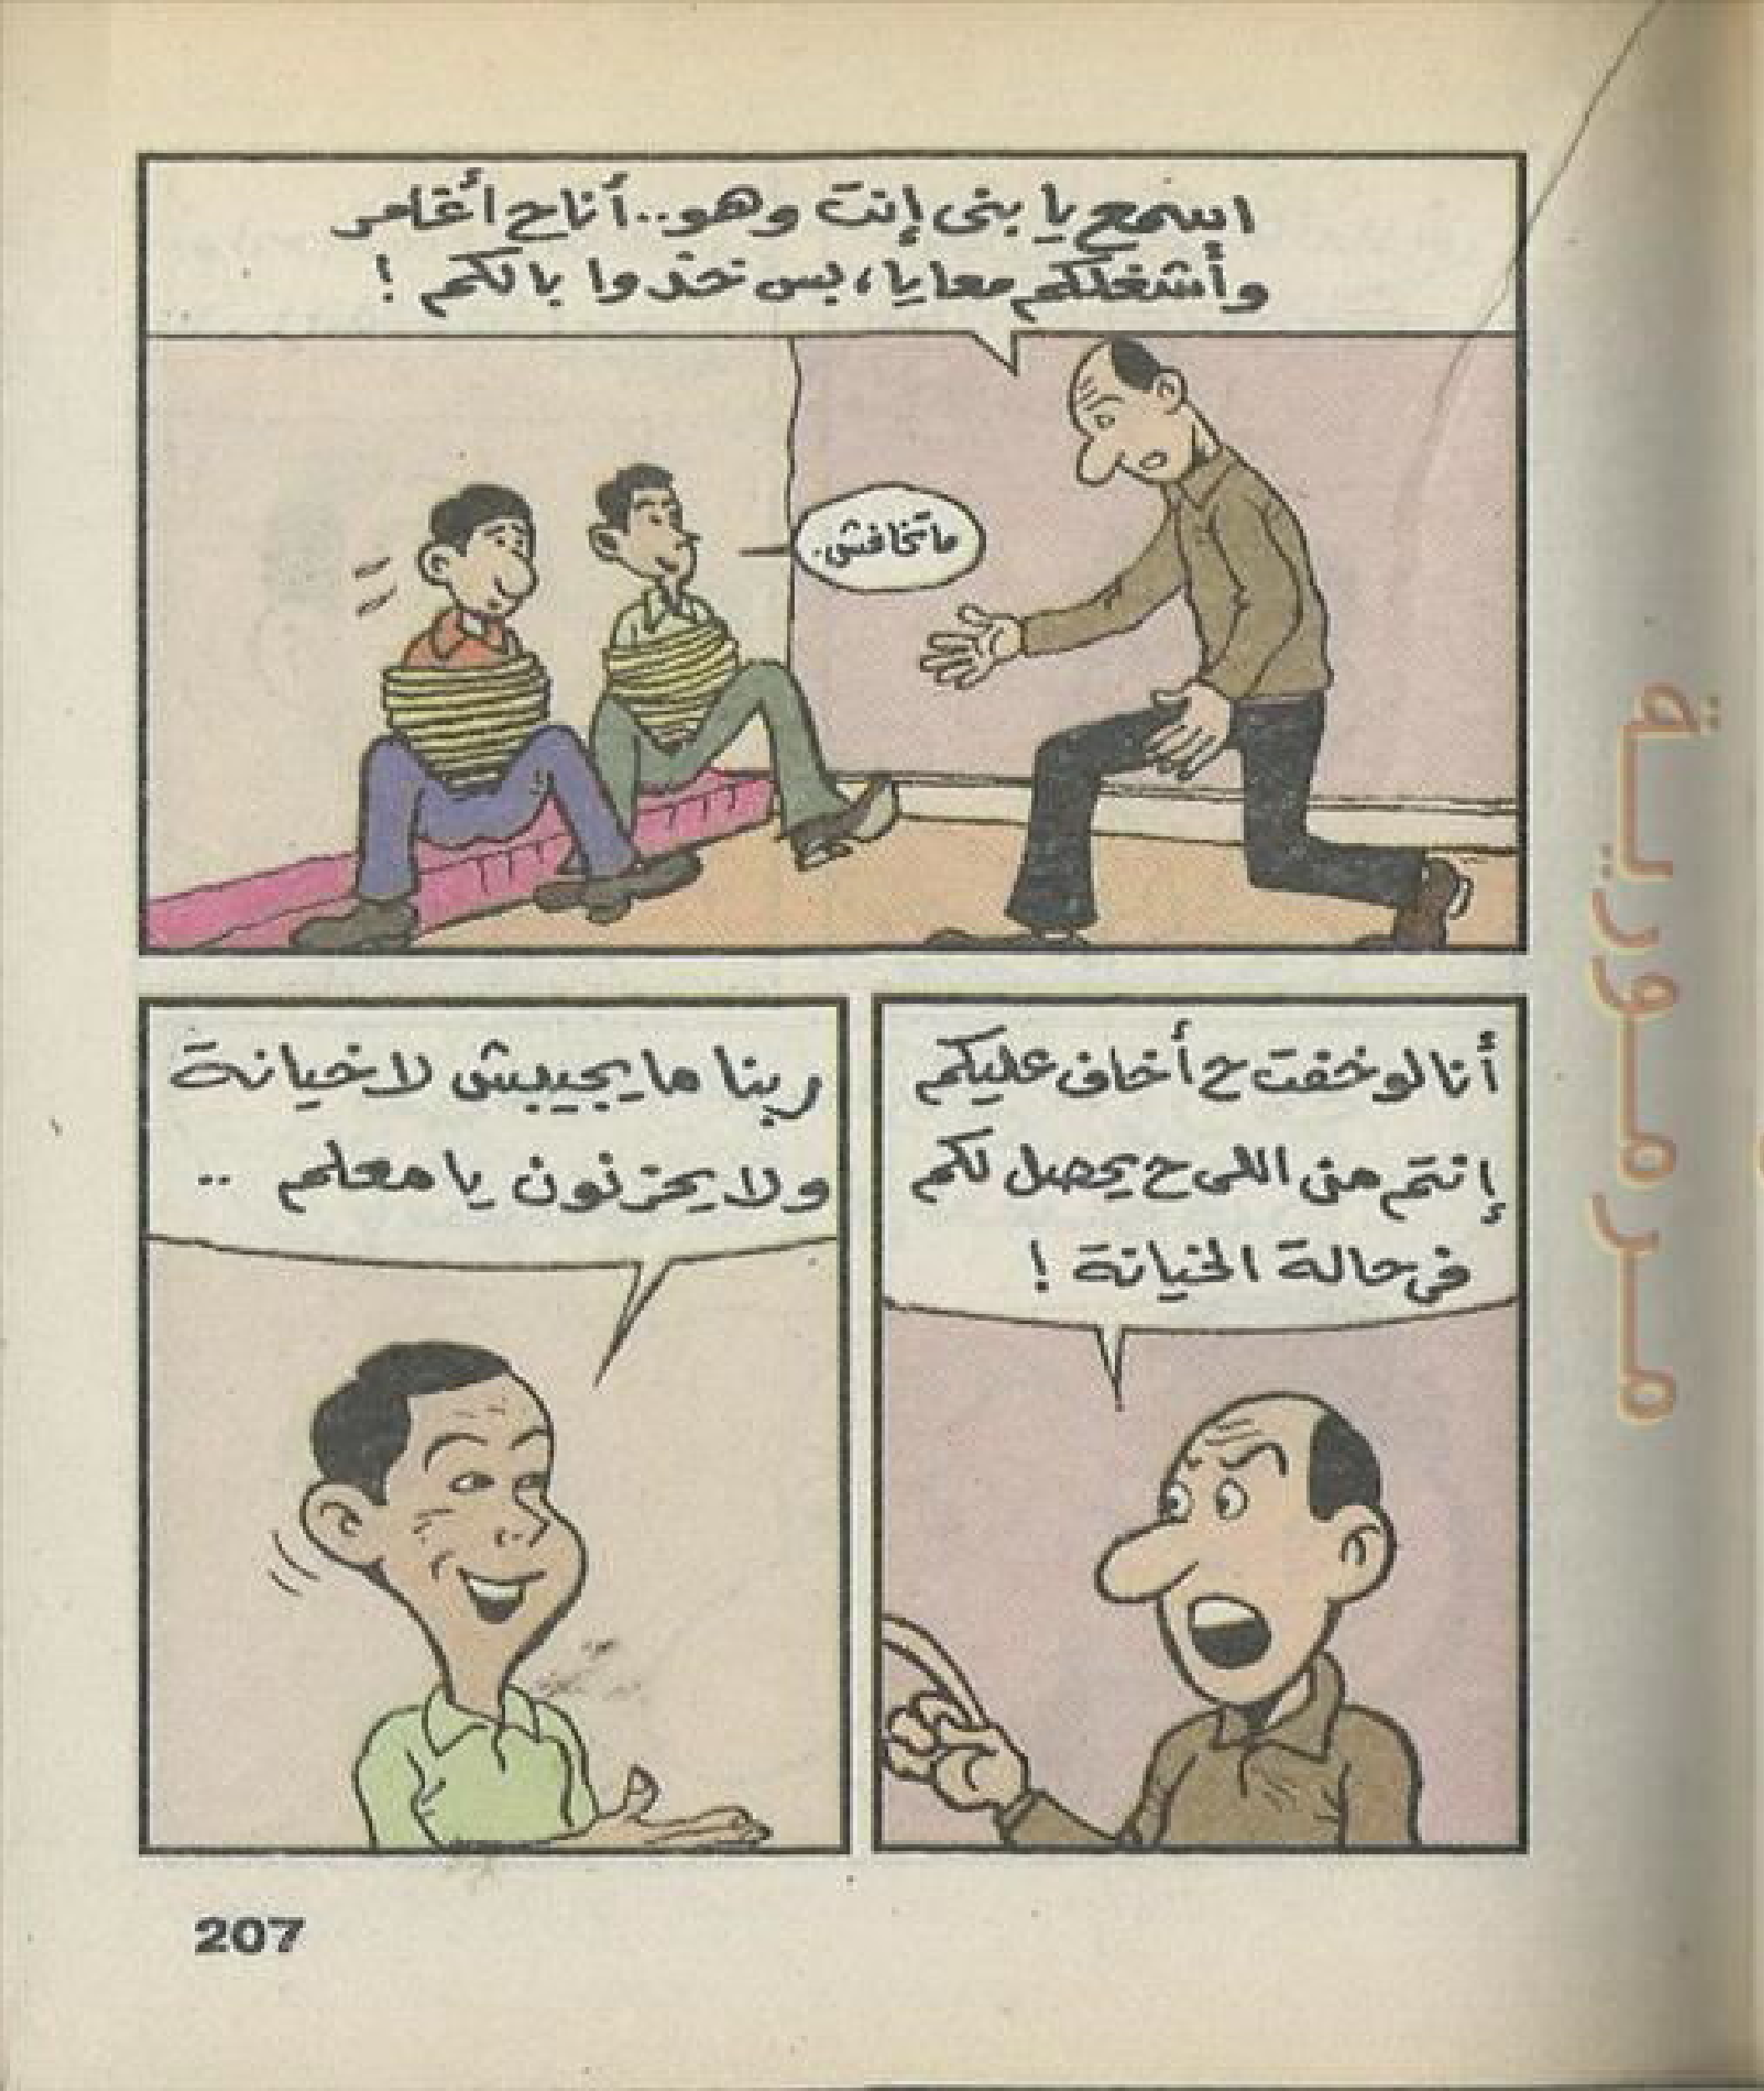 اسمع يا بنى إنت وهو..أناح أغامر
وأشغلكم معايا، بس تخدوا بالكم !
ماتخافش.
أنا لو خفت ح أخاف عليكم
إنتم من اللى ح يحصل لكم
فى حالة الخيانة !
ربنا مايجيبش لا خيانة
ولا يحزنون يا معلم ..
207